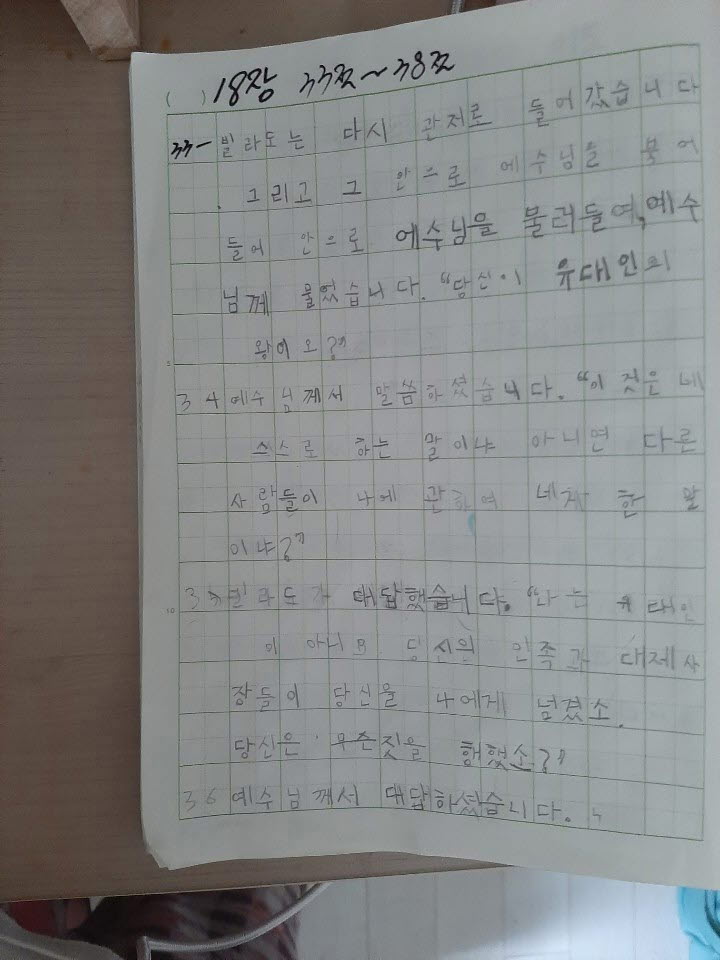 ( ) 18장 33쪼~38쪼
33- 빌라도는 다시 관저로 들어갔습니다
. 그리고 그 안으로 예수님을 불어
들어 안으로 예수님을 불러들여, 예수
님께 물었습니다. "당신이 유대인의
왕이오?"
34 예수님께서 말씀하셨습니다. "이 것은 네
스스로 하는 말이냐 아니면 다른
사람들이 나에 관하여 네게 한 말
이냐?"
35 빌라도가 대답했습니다. "나는 유대인
이 아니오 당신의 민족과 대제사
장들이 당신을 나에게 넘겼소.
당신은 무슨짓을 행했소?"
36 예수님께서 대답하셨습니다. "
5
10